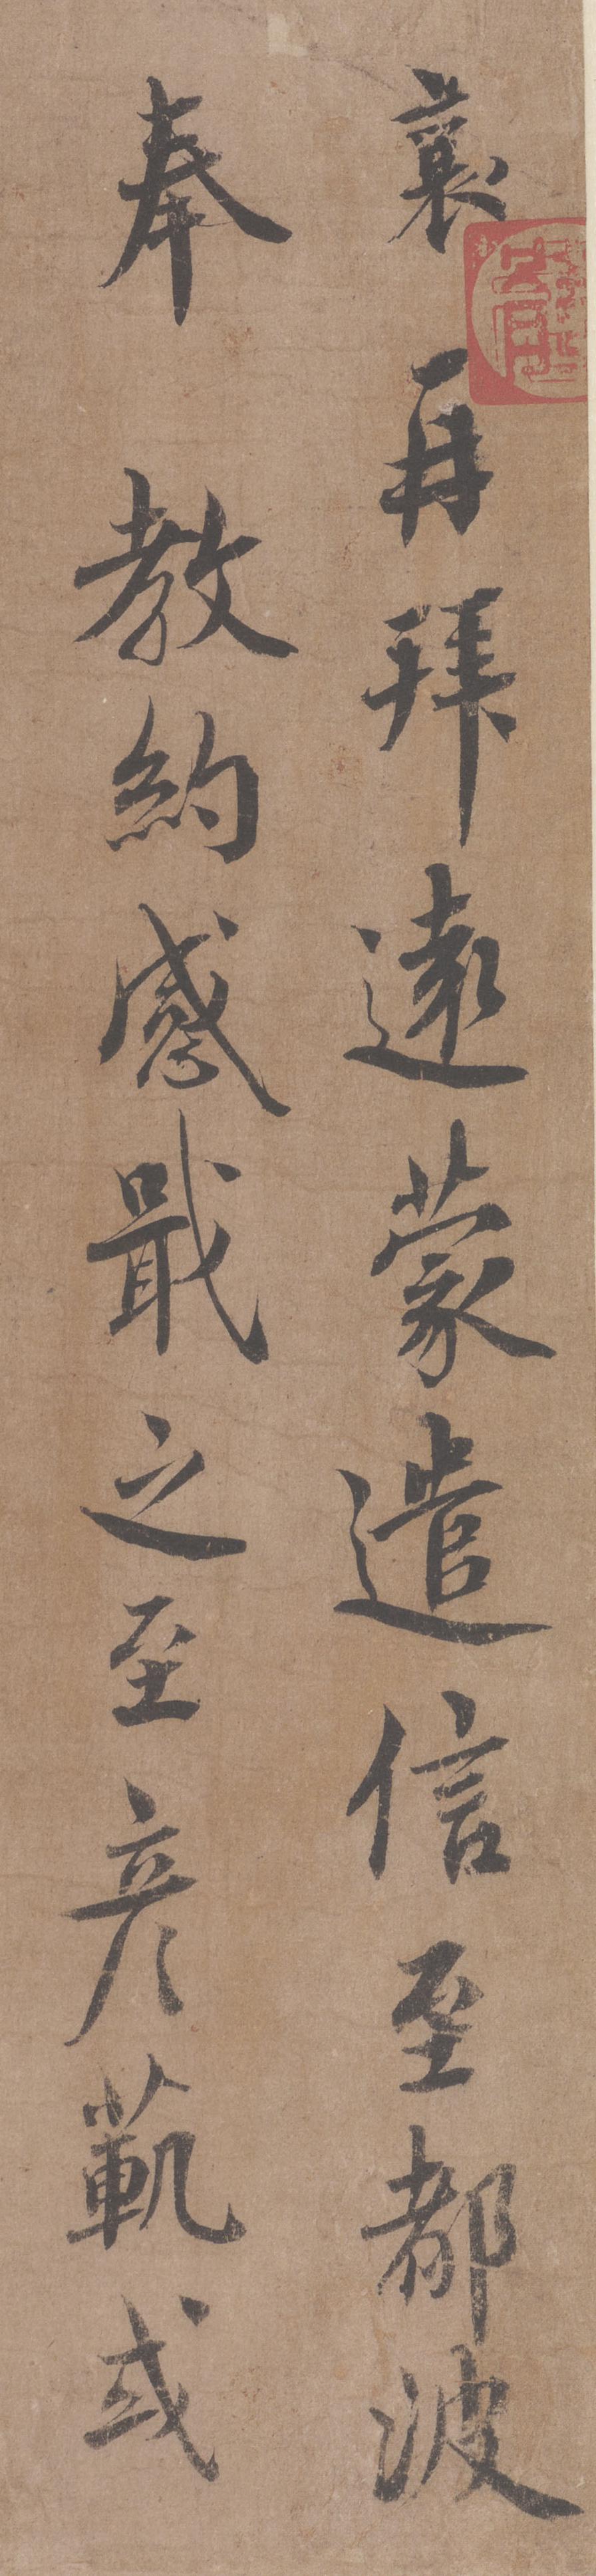 襄再拜遠蒙遣信至都波
奉教約感戢之至彥範或